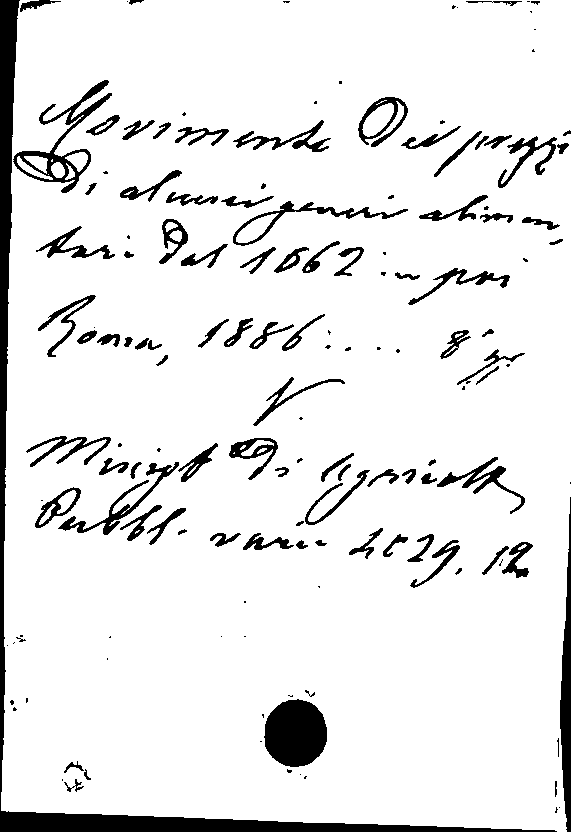 Movimento dei prezzi
di alcuni generi alimen,
tari dal 1862 in poi
Roma, 1886: .... 8° gr
V.
Minist di Agricolt
Pubbl. varie 29. 12